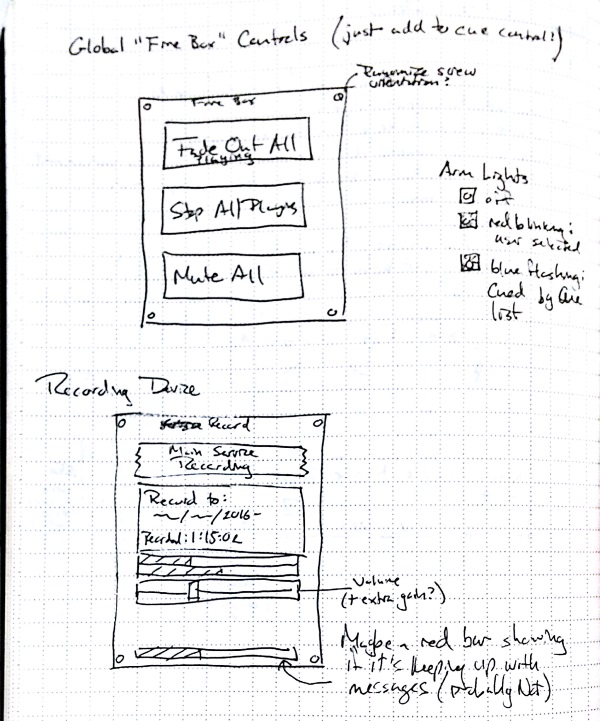 Global "Fire Box" Controls (just add to cue control?)
Randomize screw
orientation?
Fire Box
Fade Out All
Playing
Stop All Playing
Mute All
Arm Lights
off
red blinking:
user selected
blue flashing:
Cued by Cue
list
Recording Device
Record
Main Service
Recording
Record to:
~/~/2016-
Recorded: 1:15:02
Volume
(+ extra gain?)
Maybe a red bar showing
if it's keeping up with
messages (probably Not)